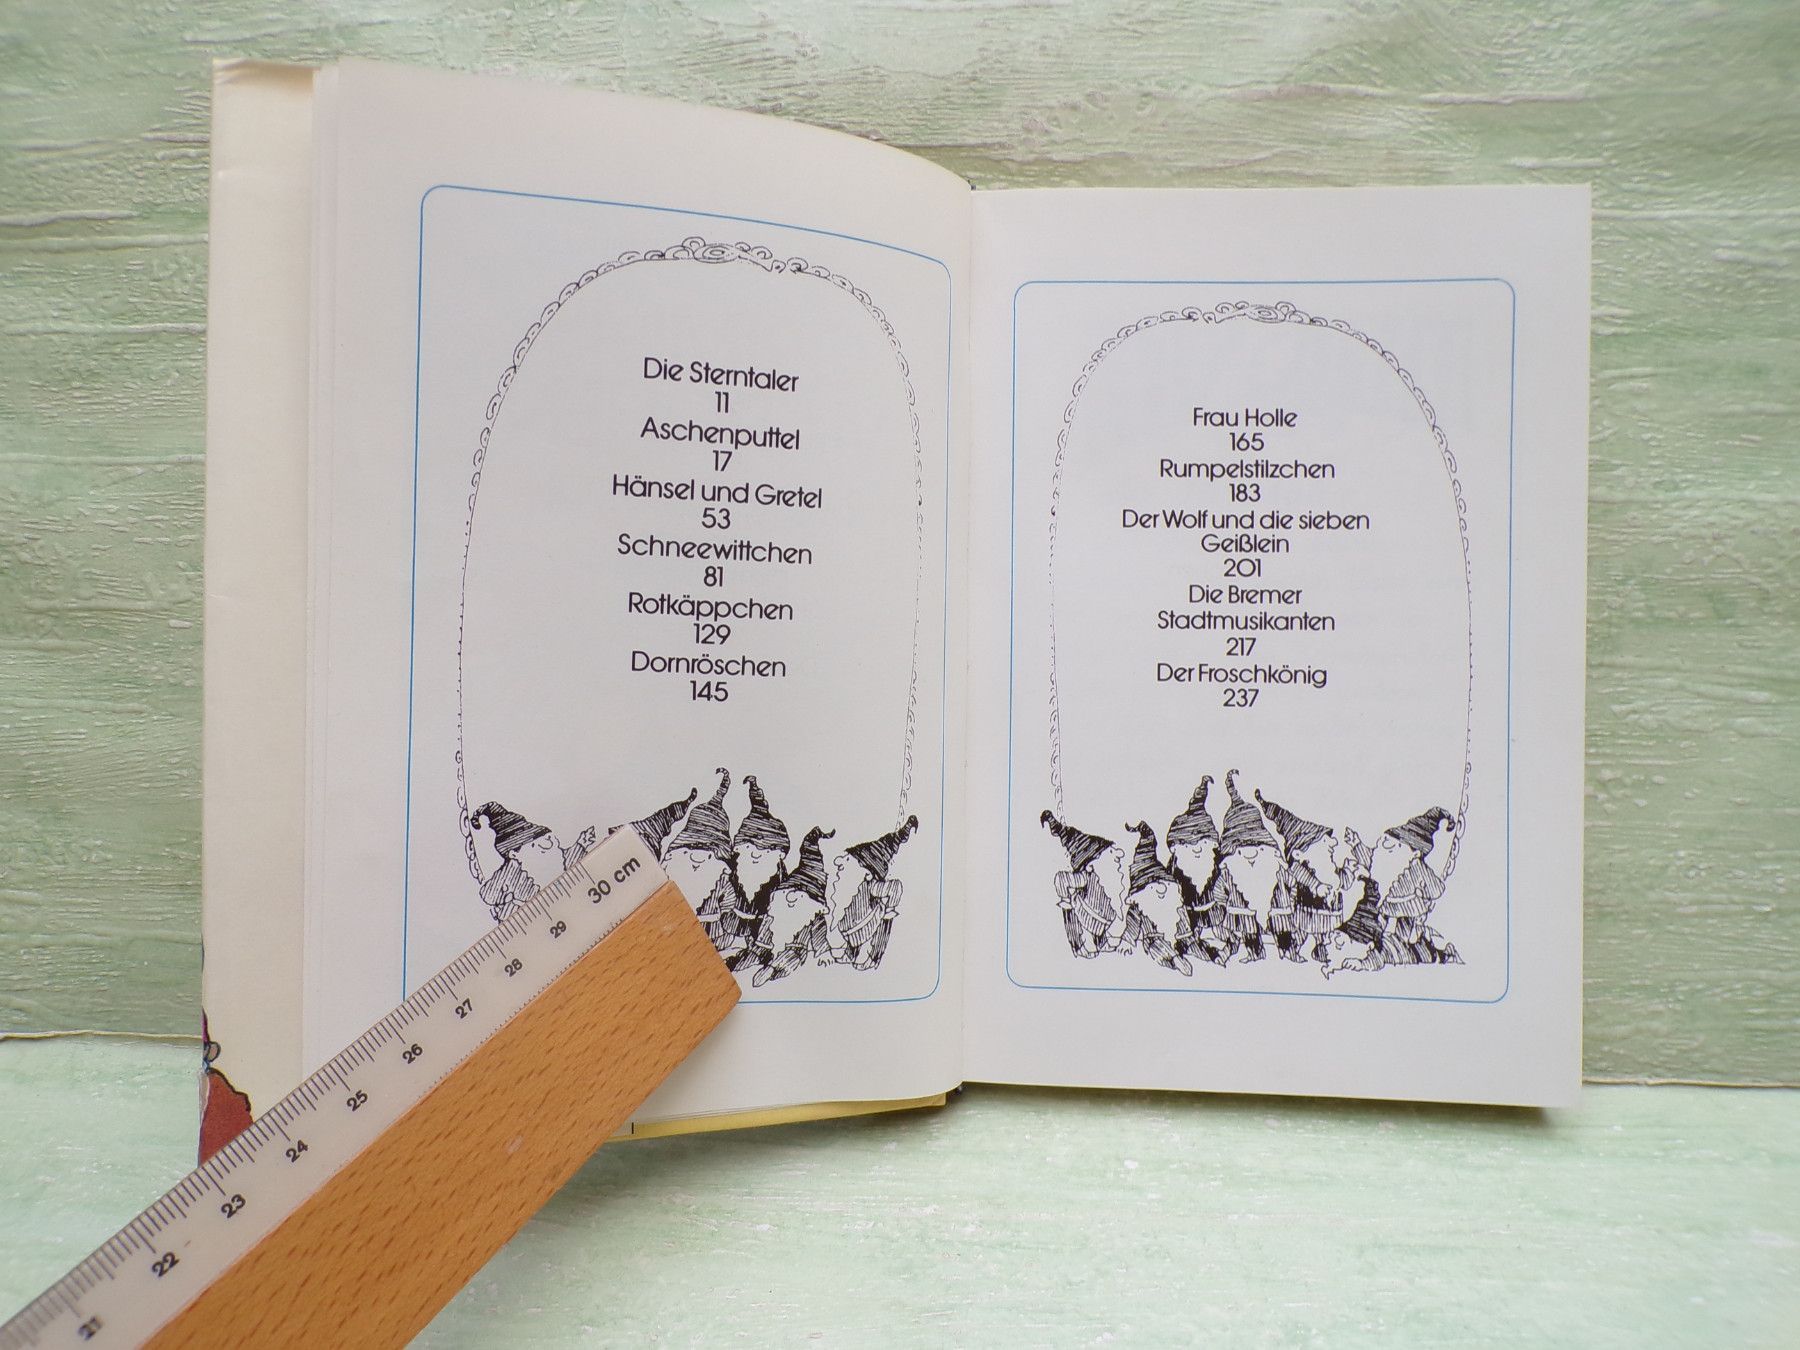 Die Sterntaler
11
Aschenputtel
17
Hänsel und Gretel
53
Schneewittchen
81
Rotkäppchen
129
Dornröschen
145
Frau Holle
165
Rumpelstilzchen
183
Der Wolf und die sieben
Geißlein
201
Die Bremer
Stadtmusikanten
217
Der Froschkönig
237
21
22
23
24
25
26
27
28
29
30 cm